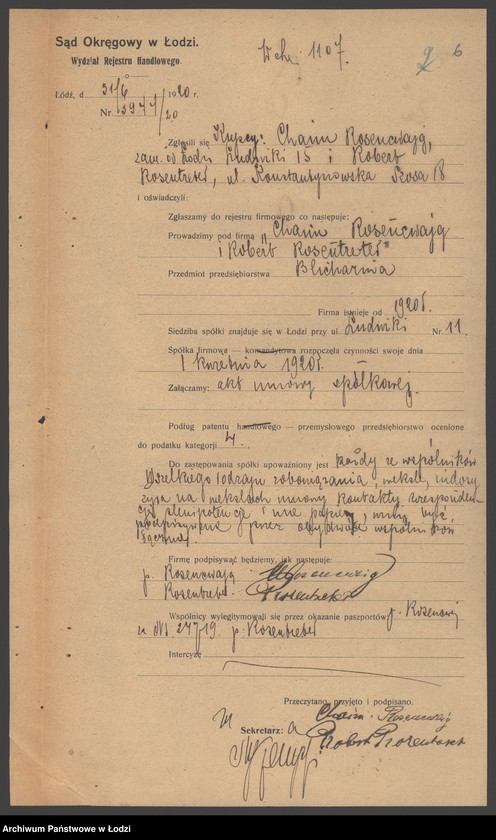 Sąd Okręgowy w Łodzi.
Wydział Rejestru Handlowego.
1107.
6
Łódź, d 31/6 1920 r.
Nr 3977/20
Zgłosili się Kupcy: Chaim Rosencwajg,
zam. w Łodzi Ludwiki 15 i Robert
Rosentreter, ul. Konstantynowska Szosa 18
i oświadczyli:
Zgłaszamy do rejestru firmowego co następuje:
Prowadzimy pod firmą „Chaim Rosencwajg
i Robert Rosentreter"
Przedmiot przedsiębiorstwa Blicharnia
Firma istnieje od 1920 r.
Siedziba spółki znajduje się w Łodzi przy ul. Ludwiki Nr. 11.
Spółka firmowa — komandytowa rozpoczęła czynności swoje dnia
1 kwietnia 1920 r.
Załączamy: akt umowy spółkowej.
Podług patentu handlowego — przemysłowego przedsiębiorstwo ocenione
do podatku kategorji 4.
Do zastępowania spółki upoważniony jest każdy ze wspólników
Wszelkiego rodzaju zobowiązania, weksle, indosy
na wekslach umowy kontrakty
plenipotencje i inne papiery, winny być
podpisywane przez obydwóch wspólników
łącznie.
Firmę podpisywać będziemy, jak następuje:
p. Rosencwajg
Rosentreter
Wspólnicy wylegitymowali się przez okazanie paszportów p. Rosencwajg
za № 27719 p. Rosentreter
Intercyzę
Przeczytano, przyjęto i podpisano.
Chaim Rosencwajg
Sekretarz:
Robert Rosentreter
Archiwum Państwowe w Łodzi